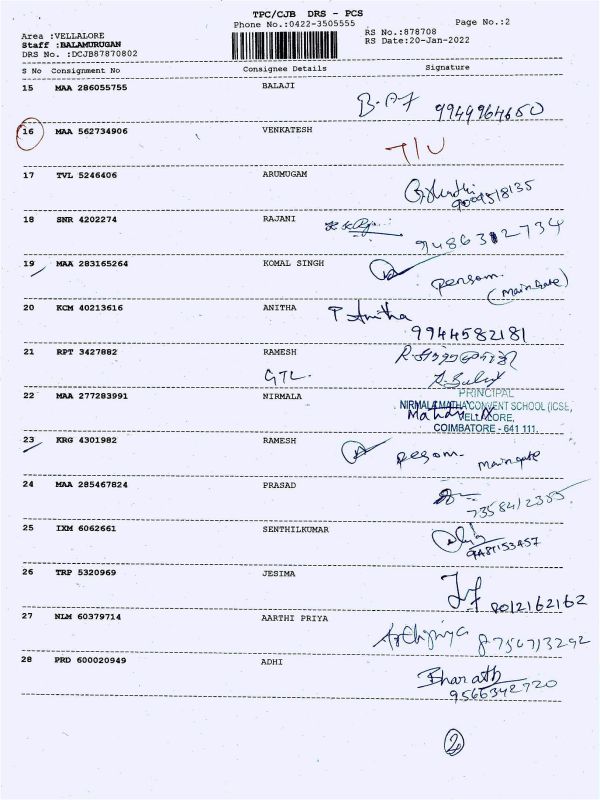 TPC/CJB DRS - PCS
Phone No.:0422-3505555
Page No.:2
Area :VELLALORE
RS No.:878708
Staff :BALAMURUGAN
RS Date:20-Jan-2022
DRS No. :DCJB87870802
S No Consignment No Consignee Details Signature
15 MAA 286055755 BALAJI
9949964650
16 MAA 562734906 VENKATESH
T/U
17 TVL 5246406 ARUMUGAM
18 SNR 4202274 RAJANI
19 MAA 283165264 KOMAL SINGH
(maingate)
20 KCM 40213616 ANITHA P Anitha
9944582181
21 RPT 3427882 RAMESH
GTL.
22 MAA 277283991 NIRMALA
PRINCIPAL
NIRMALA MATHA CONVENT SCHOOL (ICSE,
VELLALORE,
COIMBATORE - 641 111.
23 KRG 4301982 RAMESH
maingate
24 MAA 285467824 PRASAD
25 IXM 6062661 SENTHILKUMAR
9487153457
26 TRP 5320969 JESIMA
8012162162
27 NLM 60379714 AARTHI PRIYA
8756713292
28 PRD 600020949 ADHI
Bharath
9566342720
2